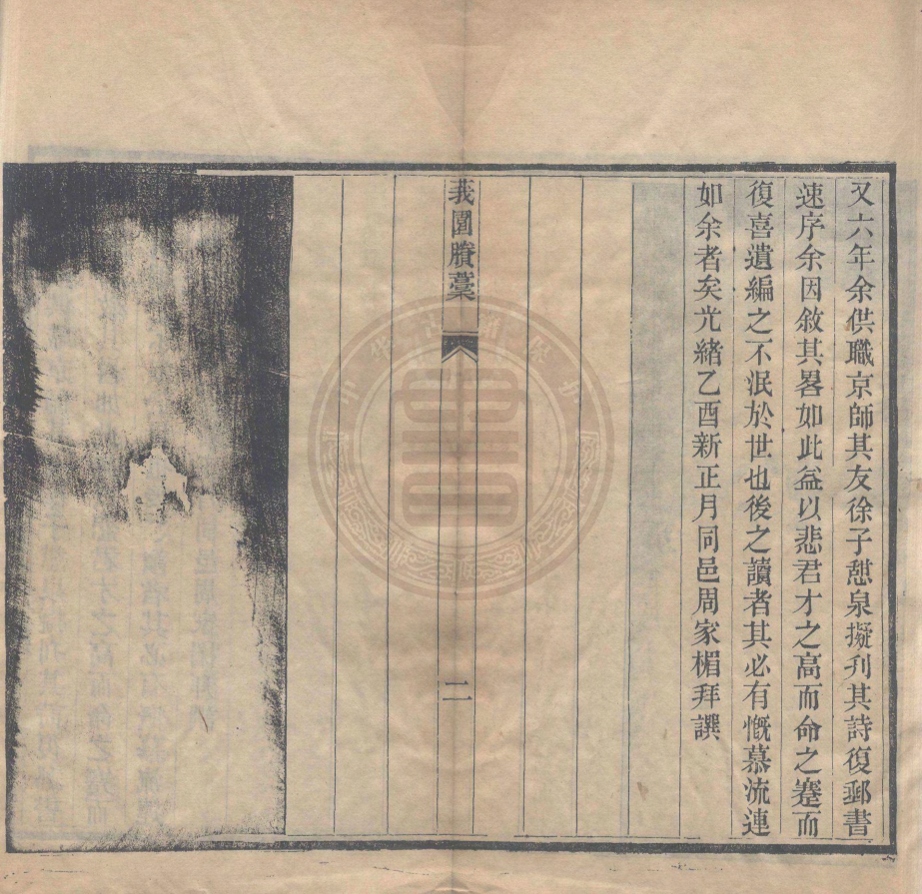 又六年余供職京師其友徐子恝泉擬刋其詩復郵書
速序余因敘其畧如此益以悲君才之高而命之蹇而
復喜遺編之不泯於世也後之讀者其必有慨慕流連
如余者矣光緒乙酉新正月同邑周家楣拜譔
莪園賸藁
二